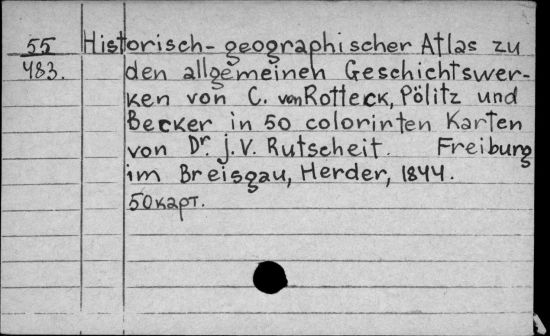 55 Historisch-geographischer Atlas zu
483. den allgemeinen Geschichtswer-
ken von C. von Rotteck, Pölitz und
Becker in 50 colorirten Karten
von Dr. J. V. Kutscheit. Freiburg
im Breisgau, Herder, 1844.
50 карт.